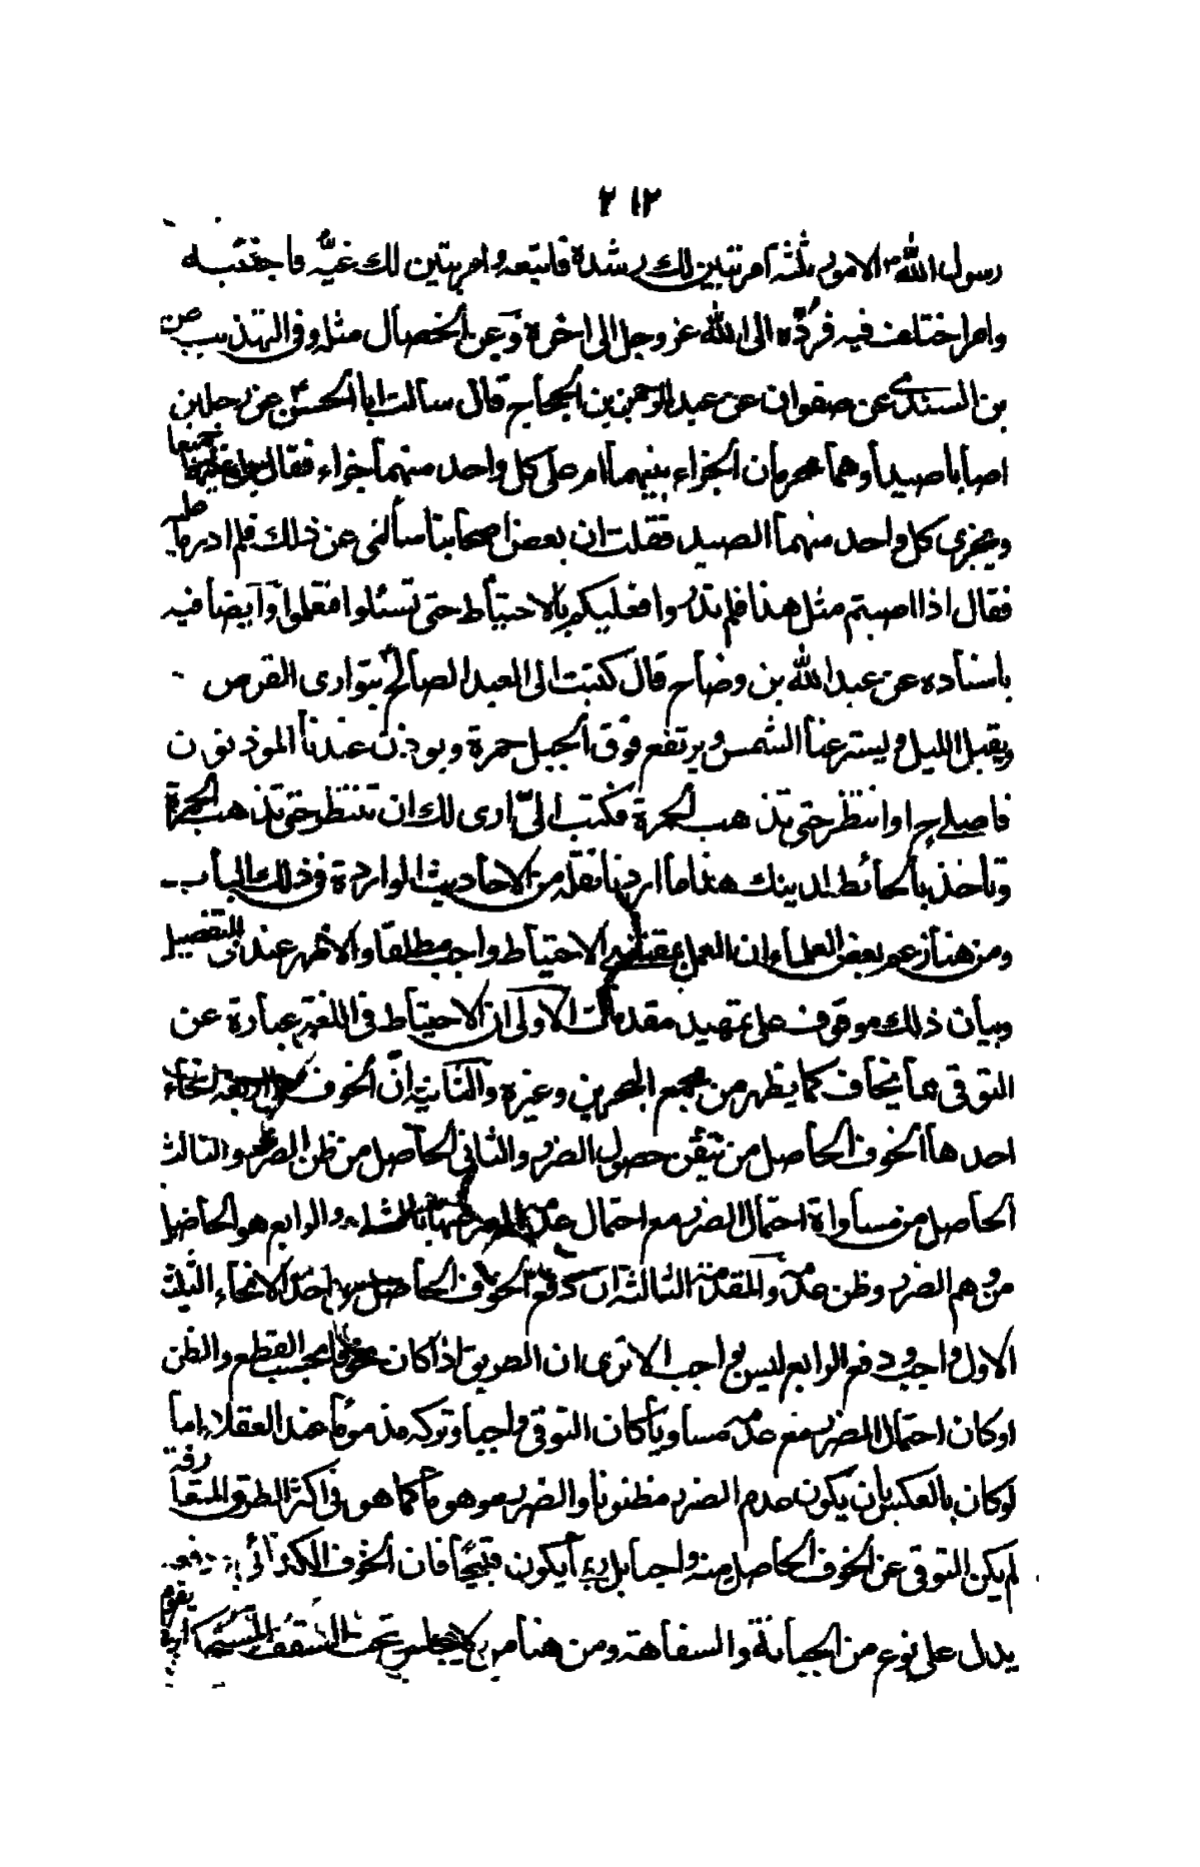 ٢١٢
رسول الله ص الامور ثلثه امر تبين لك رشده فاتبعه وامر تبين لك غيّه فاجتنبه
وامر اختلف فيه فردّه الى الله عز وجل الى اخره وعن الخصال مثله وفى التهذيب عن
بن السندى عن صفوان عن عبد الرحمن بن الحجاج قال سالت ابا الحسن ع عن رجلين
اصابا صيدا وهما محرمان الجزاء بينهما ام على كل واحد منهما جزاء فقال بل عليهما جميعا
ويجزى كل واحد منهما الصيد فقلت ان بعض اصحابنا سألنى عن ذلك فلم ادر ما عليه
فقال اذا اصبتم مثل هذا فلم تدروا فعليكم بالاحتياط حتى تسئلوا فتعلموا وايضا فيه
باسناده عن عبد الله بن وضاح قال كتبت الى العبد الصالح ع يتوارى القرص
ويقبل الليل ويستر عنا الشمس ويرتفع فوق الجبل حمرة ويوذن عندنا الموذنون
فاصلى ح او انتظر حتى تذهب الحمرة فكتب الىّ ارى لك ان تنتظر حتى تذهب الحمرة
وتاخذ بالحائط لدينك هذا ما اردنا نقله من الاحاديث الواردة فى ذلك الباب
ومن هنا زعم بعض العلماء ان العمل بمقتضى الاحتياط واجب مطلقا والاظهر عندى التفصيل
وبيان ذلك موقوف على تمهيد مقدمات الاولى ان الاحتياط فى اللغة عبارة عن
التوقى عما يخاف كما يظهر من مجمع البحرين وغيره والثانية انّ الخوف على اربعة انحاء
احدها الخوف الحاصل من تيقن حصول الضرر والثانى الحاصل من ظن الضرر والثالث
الحاصل من مساواة احتمال الضرر مع احتمال عدمه والرابع هو الحاصل
من وهم الضرر وظن عدمه والمقدمة الثالثة ان دفع الخوف الحاصل من احد الانحاء الثلث
الاول واجب ودفع الرابع ليس بواجب الا ترى ان الطريق اذا كان مخوفا بحسب القطع والظن
او كان احتمال الضرر مع عدمه مساويا كان التوقى واجبا وتركه مذموما عند العقلاء اما
لو كان بالعكس بان يكون عدم الضرر مظنونا والضرر موهوما كما هو فى اكثر الطرق المتعارفة
لم يكن التوقى عن الخوف الحاصل منه واجبا بل ربما يكون قبيحا فان الخوف الكذائى
يدل على نوع من الجبانة والسفاهة ومن هنا من لا يجلس تحت السقف